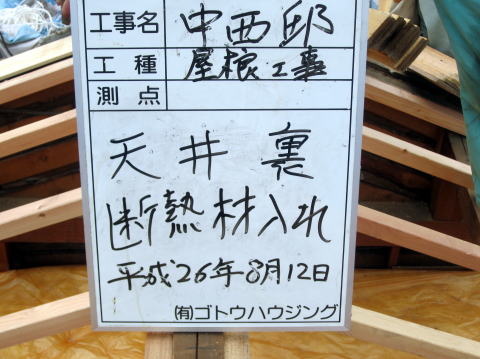 工事名 中西邸
工種 屋根工事
測点
天井裏
断熱材入れ
平成26年8月12日
(有)ゴトウハウジング